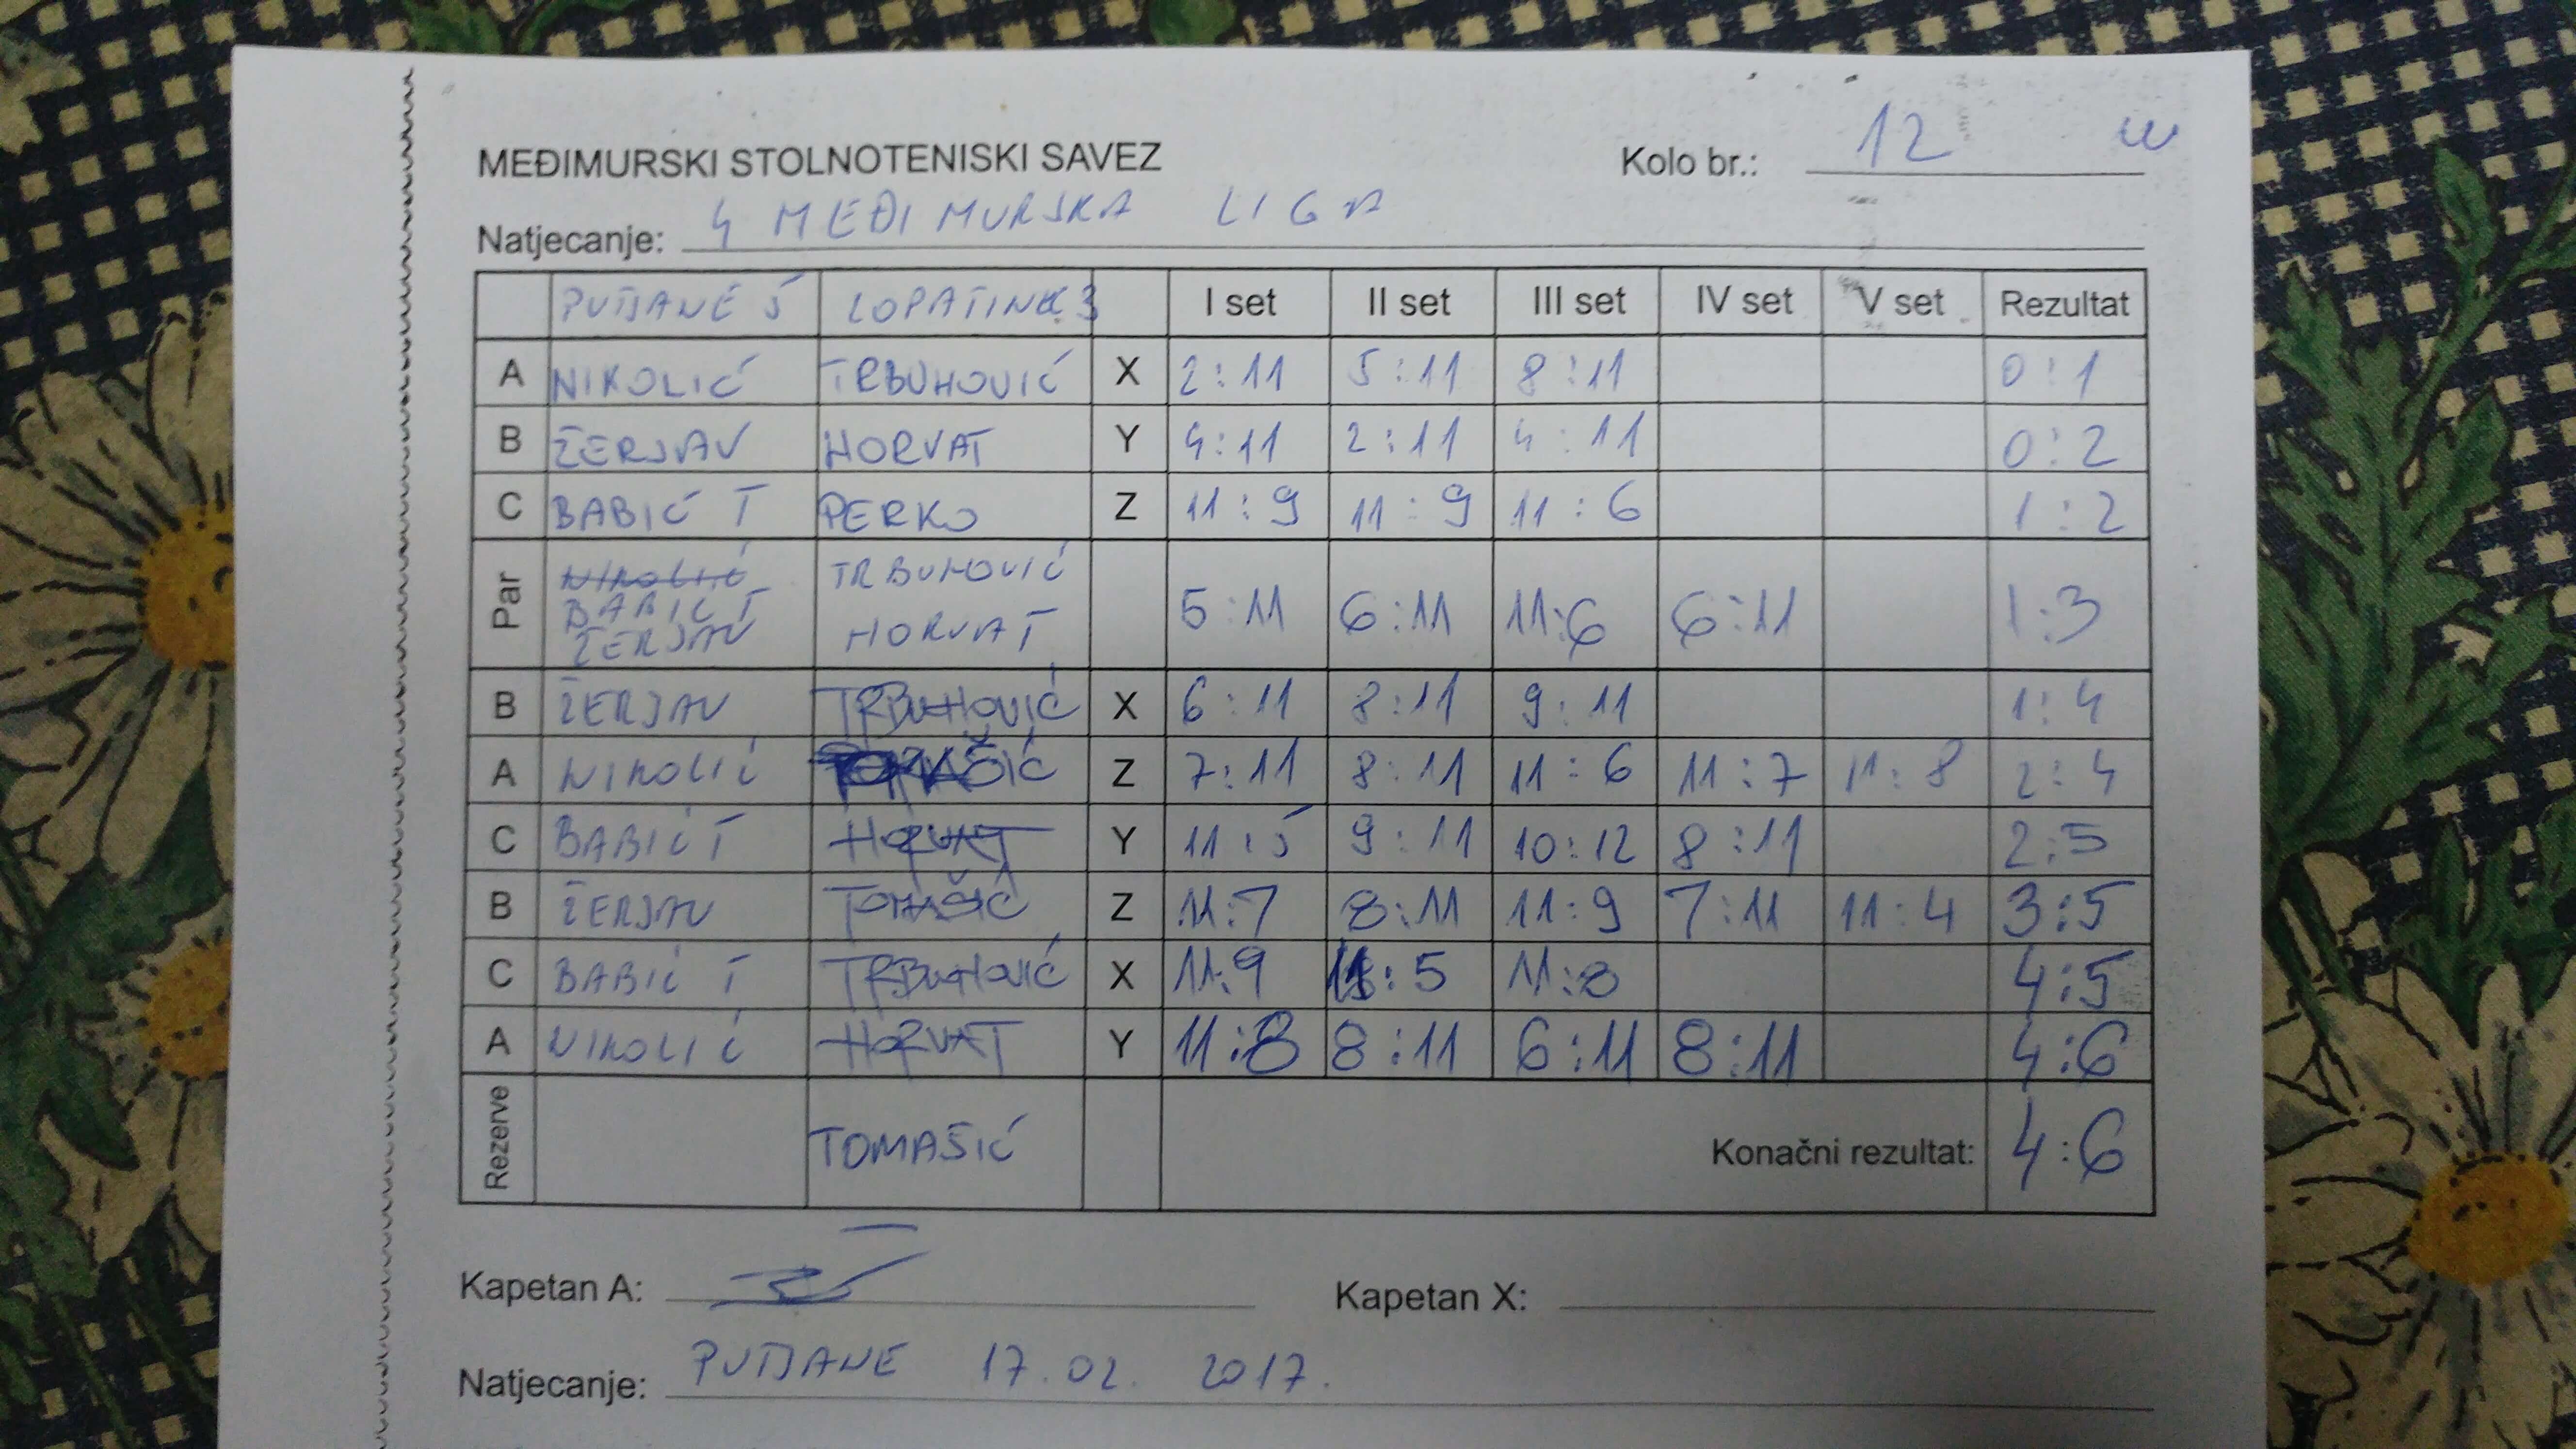 MEĐIMURSKI STOLNOTENISKI SAVEZ
Kolo br.: 12
Natjecanje: 4 MEĐIMURSKA LIGA
PUTJANE 5 LOPATINEC 3 I set II set III set IV set V set Rezultat
A NIKOLIĆ TRBUHOVIĆ X 2:11 5:11 8:11 0:1
B ŽERJAV HORVAT Y 4:11 2:11 4:11 0:2
C BABIĆ T PERKO Z 11:9 11:9 11:6 1:2
Par NIKOLIĆ BABIĆ T ŽERJAV TRBUHOVIĆ HORVAT 5:11 6:11 11:6 6:11 1:3
B ŽERJAV TRBUHOVIĆ X 6:11 8:11 9:11 1:4
A NIKOLIĆ Z 7:11 8:11 11:6 11:7 11:8 2:4
C BABIĆ T HORVAT Y 11:5 9:11 10:12 8:11 2:5
B ŽERJAV TOMAŠIĆ Z 11:7 8:11 11:9 7:11 11:4 3:5
C BABIĆ T TRBUHOVIĆ X 11:9 11:5 11:8 4:5
A NIKOLIĆ HORVAT Y 11:8 8:11 6:11 8:11 4:6
Rezerve TOMAŠIĆ Konačni rezultat: 4:6
Kapetan A: Kapetan X:
Natjecanje: PUTJANE 17.02. 2017.